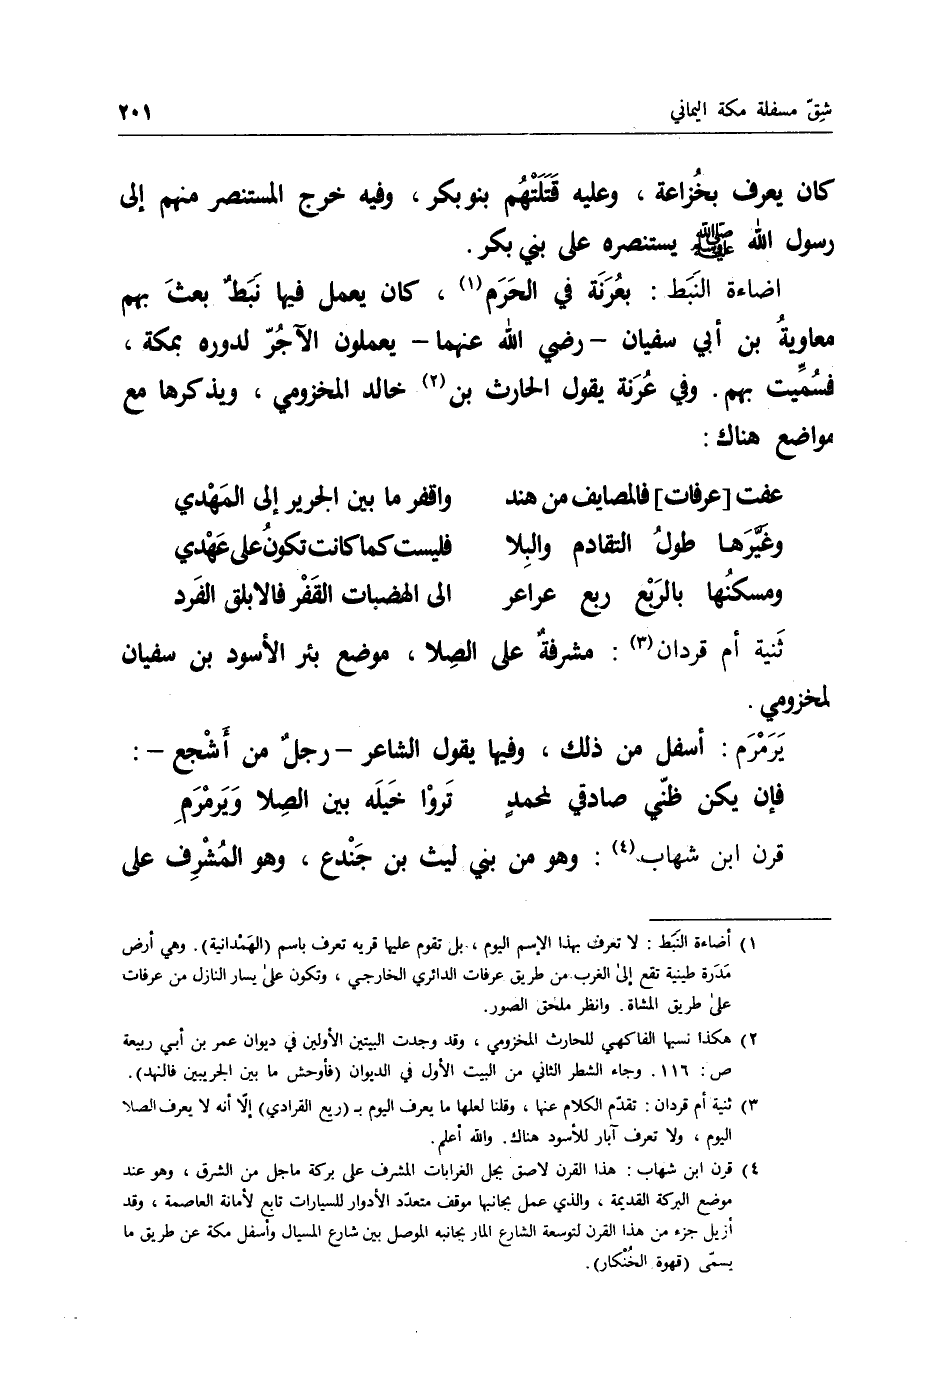 شِقّ مسفلة مكة اليماني ٢٠١
كان يعرف بخُزاعة ، وعليه قَتَلَتْهُم بنو بكر ، وفيه خرج المستنصر منهم إلى
رسول الله ﷺ يستنصره على بني بكر .
اضاءة النَبَط : بعُرَنَة في الحَرَم(١) ، كان يعمل فيها نَبَطٌ بعثَ بهم
معاويةُ بن أبي سفيان – رضي الله عنهما – يعملون الآجُرّ لدوره بمكة ،
فسُمِّيت بهم . وفي عُرَنة يقول الحارث بن(٢) خالد المخزومي ، ويذكرها مع
مواضع هناك :
عفت [عرفات] فالمصايف من هند واقفر ما بين الجرير إلى المَهْدي
وغَيَّرَها طولُ التقادم والبِلا فليست كما كانت تكونُ على عَهْدي
ومسكنُها بالرَبْع ربع عراعر الى الهضبات القَفْر فالابلق الفَرد
ثَنية أم قردان(٣) : مشرفةٌ على الصِلا ، موضع بئر الأسود بن سفيان
لمخزومي .
يَرَمْرَم : أسفل من ذلك ، وفيها يقول الشاعر – رجلٌ من أَشْجع – :
فإن يكن ظنّي صادقي لمحمدٍ تَروْا خَيلَه بين الصِلا وَيَرمْرَمِ
قرن ابن شهاب(٤) : وهو من بني ليث بن جَنْدع ، وهو المُشْرِف على
١) أضاءة النَبَط : لا تعرف بهذا الإسم اليوم ، بل تقوم عليها قريه تعرف باسم (الهَمْدانية) . وهي أرض
مَدَرة طينية تقع إلى الغرب من طريق عرفات الدائري الخارجي ، وتكون على يسار النازل من عرفات
على طريق المشاة . وانظر ملحق الصور .
٢) هكذا نسبها الفاكهي للحارث المخزومي ، وقد وجدت البيتين الأولين في ديوان عمر بن أبي ربيعة
ص : ١١٦ . وجاء الشطر الثاني من البيت الأول في الديوان (فأوحش ما بين الجريبين فالنهد) .
٣) ثنية أم قردان : تقدّم الكلام عنها ، وقلنا لعلها ما يعرف اليوم بـ (ريع القرادي) إلّا أنه لا يعرف الصلا
اليوم ، ولا تعرف آبار للأسود هناك . والله أعلم .
٤) قرن ابن شهاب : هذا القرن لاصق بجل الغرابات المشرف على بركة ماجل من الشرق ، وهو عند
موضع البركة القديمة ، والذي عمل بجانبها موقف متعدّد الأدوار للسيارات تابع لأمانة العاصمة ، وقد
أزيل جزء من هذا القرن لتوسعة الشارع المار بجانبه الموصل بين شارع المسيال وأسفل مكة عن طريق ما
يسمّى (قهوة الخُنْكار) .